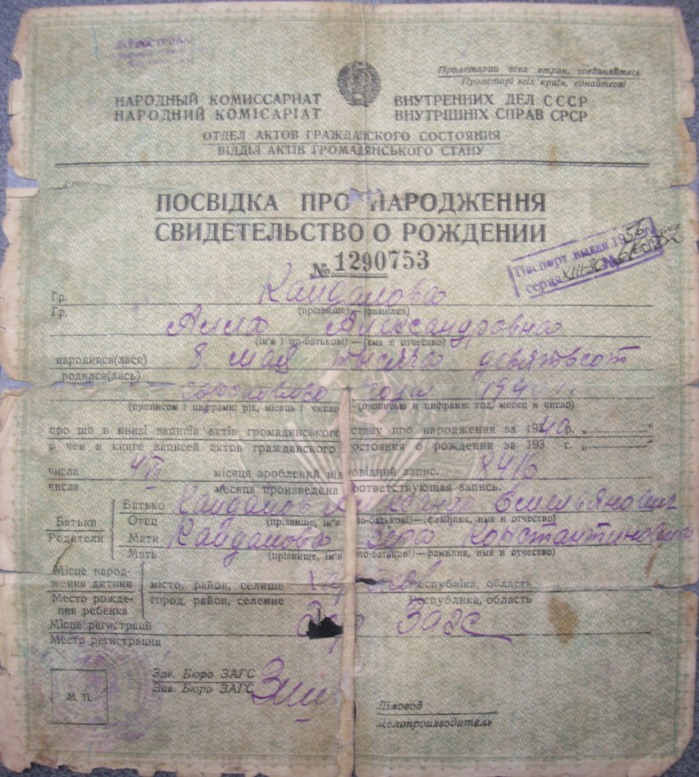 Пролетарии всех стран, соединяйтесь
Пролетарі всіх країн, єднайтеся!
НАРОДНЫЙ КОМИССАРИАТ ВНУТРЕННИХ ДЕЛ СССР
НАРОДНИЙ КОМІСАРІАТ ВНУТРІШНІХ СПРАВ СРСР
ОТДЕЛ АКТОВ ГРАЖДАНСКОГО СОСТОЯНИЯ
ВІДДІЛ АКТІВ ГРОМАДЯНСЬКОГО СТАНУ
ПОСВІДКА ПРО НАРОДЖЕННЯ
СВИДЕТЕЛЬСТВО О РОЖДЕНИИ
№ 1290753
Паспорт выдан 1956
серия XIII-
Гр. Кайданова
Гр. (прізвище)—(фамилия)
Алла Александровна
(ім'я і по-батькові)—(имя и отчество)
народився(лася) 8 мая тысяча девятьсот
родился(лась) сорокового года 194
(прописом і цифрами: рік, місяць і число)—(прописью и цифрами: год, месяц и число)
про що в книзі записів актів громадянського стану про народження за 1940 р. „
о чем в книге записей актов гражданского состояния о рождении за 193 г. „
числа 4/III місяця зроблений відповідний запис. 8416
числа месяца произведена соответствующая запись.
Батьки Батько Кайданов Александр Емельянович
Родители Отец (прізвище, ім'я по-батькові)—(фамилия, имя и отчество)
Мати Кайданова Константиновна
Мать (прізвище, ім'я по-батькові)—(фамилия, имя и отчество)
Місце народ-
ження дитини місто, район, селище республіка, область
Место рожде-
ния ребенка город, район, селение Республика, область
Місце регистрації Загс
Место регистрации
Зав. Бюро ЗАГС
Зав. Бюро ЗАГС
М. П.
Діловод
Делопроизводитель